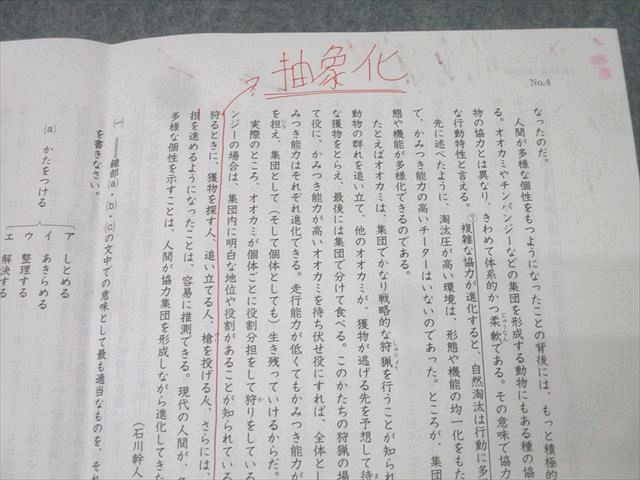 抽象化
No.4
なったのだ。
人間が多様な個性をもつようになったことの背後には、もっと積極的
る。オオカミやチンパンジーなどの集団を形成する動物にもある種の協
物の協力とは異なり、きわめて体系的かつ柔軟である。その意味で協力
な行動特性と言える。㋐複雑な協力が進化すると、自然淘汰は行動に多
先に述べたように、淘汰圧が高い環境は、形態や機能の均一化をもた
で、かみつき能力の高いチーターはいないのであった。ところが、集団
態や機能が多様化できるのである。
たとえばオオカミは、集団でかなり戦略的な狩猟を行うことが知られ
動物の群れを追い立て、他のオオカミが、獲物が逃げる先を予想して待
な獲物をとらえ、最後には集団で分けて食べる。このかたちの狩猟の場
て役に、かみつき能力が高いオオカミを待ち伏せ役にすれば、全体とし
みつき能力はそれぞれ進化できる。走行能力が低くてもかみつき能力が
を担え、集団として(そして個体としても)生き残っていけるからだ。
実際のところ、オオカミが個体ごとに役割分担をして狩りをしている
ンジーの場合は、集団内に明白な地位や役割があることが知られている
狩るときに、獲物を探す人、追い立てる人、槍を投げる人、さらには、
担を進めるようになったことは、容易に推測できる。現代の人間が、
多様な個性を示すことは、人間が協力集団を形成しながら進化してきた
(石川幹人
㈠ ――線部ⓐ・ⓑ・ⓒの文中での意味として最も適当なものを、それ
を書きなさい。
ⓐ かたをつける
ア しとめる
イ あきらめる
ウ 整理する
エ 解決する